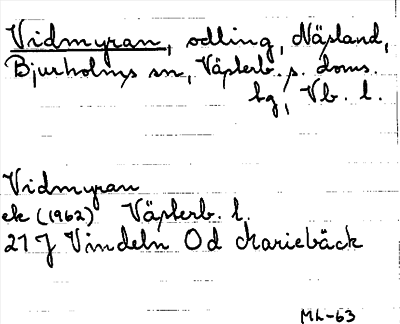 Vidmyran, odling, Näsland,
Bjurholms sn, Västerb. s. doms.
hg, Vb. l.
Vidmyran
ek (1962) Västerb. l.
21 J Vindeln 0d Mariebäck
ML-63